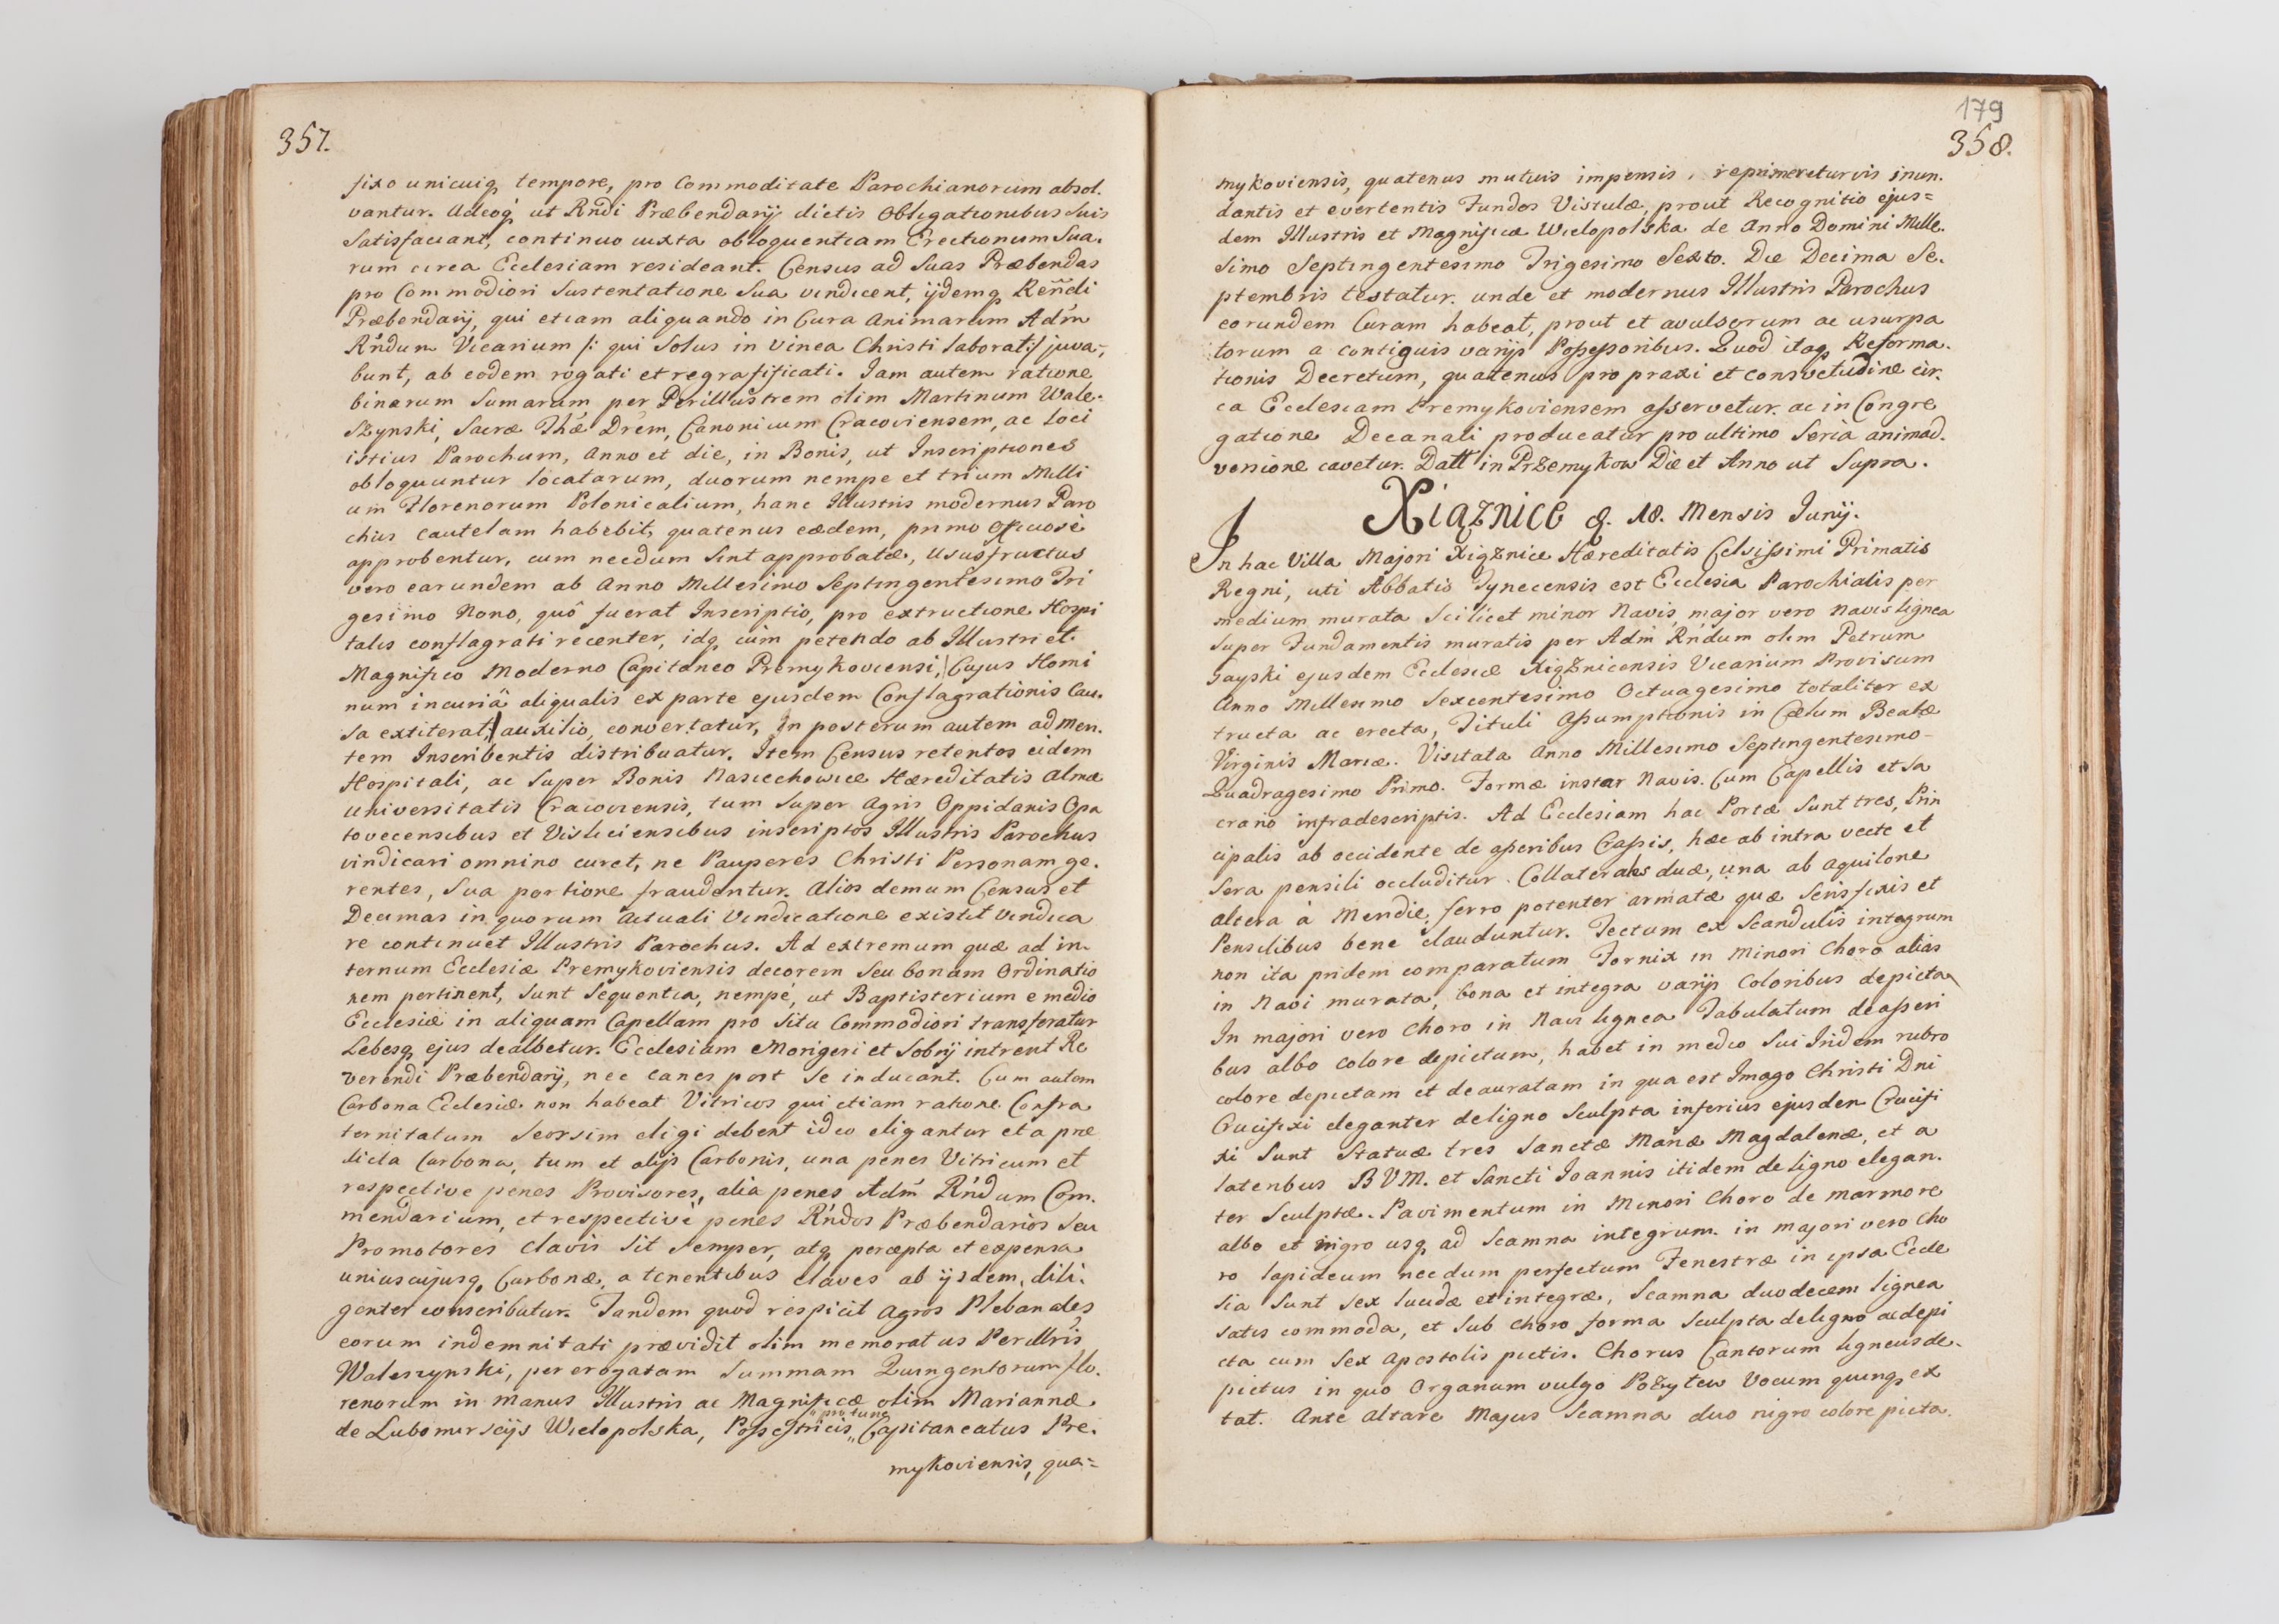 357.
fixo unicuiq tempore, pro Commoditate Parochianorum absol.
vantur. Adeoq ut Rndi Præbendarij dictis Obligationibus Suis
Satisfaciant, continuo iuxta obloquentiam Erectionum Sua.
rum circa Ecclesiam resideant. Census ad Suas Præbendas
pro Commodiori Sustentatione Sua vindicent, ijdemq Rendi
Præbendarij, qui etiam aliquando in Cura Animarum Adm
Rndum Vicarium /: qui Solus in Vinea Christi laborat :/ juva-
bunt, ab eodem rogati et regratificati. Iam autem ratione
binarum Sumarum per Perillustrem olim Martinum Wale-
Szynski, Sacræ Thæ Drem, Canonicum Cracoviensem, ac loci
istius Parochum, Anno et die, in Bonis, ut Inscriptiones
obloquuntur locatarum, duorum nempe et trium Milli
um Florenorum Polonicalium, hanc Illustris modernus Paro
chus Cautelam habebit, quatenus eædem, primo officiose
approbentur, cum necdum Sint approbatæ, Ususfructus
vero earundem ab Anno Millesimo Septingentesimo Tri
gesimo Nono, quô fuerat Inscriptio, pro extructione Hospi
talis conflagrati recenter, idq cum petendo ab Illustri et
Magnifico Moderno Capitaneo Premykoviensi, /Cujus Homi
num incuriâ aliqualis ex parte ejusdem Conflagrationis Cau-
sa extiterat:/ auxilio, convertatur, In posterum autem ad men.
tem Inscribentis distribuatur. Item Census retentos eidem
Hospitali, ac Super Bonis Nasiechowice Hæreditatis Almæ
Universitatis Cracoviensis, tum Super Agris Oppidanis Opa
tovecensibus et Visliciensibus inscriptos Illustris Parochus
vindicari omnino curet, ne Pauperes Christi Personam ge.
rentes, Sua portione fraudentur. Alios demum Census et
Decimas in quorum Actuali Vindicatione existit Vindica
re continuet Illustris Parochus. Ad extremum quæ ad in-
ternum Ecclesiæ Premykoviensis decorem Seu bonam Ordinatio
nem pertinent, Sunt Sequentia, nempé, ut Baptisterium e medio
Ecclesiæ in aliquam Capellam pro Situ Commodiori transferatur
Lebesq ejus dealbetur. Ecclesiam Morigeri et Sobrij intrent Re
verendi Præbendarij, nec canes post Se inducant. Cum autem
Carbona Ecclesiæ non habeat Vitricos qui etiam ratione Confra
ternitatum Seorsim eligi debent ideo eligantur et a præ
dicta Carbona, tum et alijs Carbonis, una penes Vitricum et
respective penes Provisores, alia penes Adm Rndum Com.
mendarium, et respectivé penes Rndos Præbendarios Seu
Promotores Clavis Sit Semper, atq percepta et expensa
uniuscujusq Carbonæ a tenentibus Claves ab ijsdem, dili.
genter conscribatur. Tandem quod respicit Agros Plebanales
eorum indemnitati prævidit olim memoratus Perillris
Waleszynski, per erogatam Summam Quingentorum flo.
renorum in manus Illustris ac Magnificæ olim Mariannæ
de Lubomirscijs Wielopolska, Possestricis „pro tunc„ Capitaneatus Pre.
mykoviensis, qua=
179
358.
mykoviensis, quatenus mutuis impensis, reprimeretur vis inun.
dantis et evertentis Fundos Vistulæ, prout Recognitio ejus=
dem Illustris et Magnificæ Wielopolska de Anno Domini Mille.
Simo Septingentesimo Trigesimo Sexto. Die Decima Se.
ptembris testatur. unde et modernus Illustris Parochus
eorundem Curam habeat, prout et avulsorum ac usurpa
torum a contiguis varijs Possessoribus. Quod itaq Reforma.
tionis Decretum, quatenus pro praxi et consvetudine cir.
ca Ecclesiam Premykoviensem asservetur. ac in Congre
gatione Decanali producatur pro ultimo Seria animad.
versione cavetur. Datt in Przemykow Die et Anno ut Supra.
Xiąznice d. 18. Mensis Iunij.
In hac Villa Majori Xiąznice Hæreditatis Celsissimi Primatis
Regni, uti Abbatis Tynecensis est Ecclesia Parochialis per
medium murata Scilicet minor Navis, major vero navis lignea
Super Fundamentis muratis per Adm Rndum olim Petrum
Gayski ejusdem Ecclesiæ Xiąznicensis Vicarium Provisum
Anno Millesimo Sexcentesimo Octuagesimo totaliter ex
tructa ac erecta, Tituli Assumptionis in Cælum Beatæ
Virginis Mariæ. Visitata Anno Millesimo Septingentesimo-
Quadragesimo Primo. Formæ instar Navis. Cum Capellis et Sa
crario infradescriptis. Ad Ecclesiam hac Portæ Sunt tres, Prin
cipalis ab occidente de asseribus Crassis, hæc ab intra vecte et
Sera pensili occluditur. Collaterales duæ, una ab aquilone
altera à Meridie, ferro potenter armatæ quæ Seris fixis et
Pensilibus bene clauduntur. Tectum ex Scandulis integrum
non ita pridem comparatum Fornix in Minori Choro alias
in Navi murata, bona et integra varijs Coloribus depicta
In majori vero Choro in Navi lignea Tabulatum de asseri
bus albo colore depictum, habet in medio Sui Iridem rubro
colore depictam et deauratam in qua est Imago Christi Dni
Crucifixi eleganter de ligno Sculpta inferius ejusdem Crucifi
xi Sunt Statuæ tres Sanctæ Mariæ Magdalenæ, et a
lateribus B V M. et Sancti Ioannis itidem de ligno elegan.
ter Sculptæ. Pavimentum in Minori Choro de marmore
albo et nigro usq ad Scamna integrum. in majori vero Cho
ro lapideum necdum perfectum Fenestræ in ipsa Eccle
sia Sunt Sex lucidæ et integræ, Scamna duodecem lignea
satis commoda, et Sub choro forma Sculpta de ligno ac depi
cta cum Sex Apostolis pictis. Chorus Cantorum ligneus de-
pictus in quo Organum vulgo Pozytew Vocum quinq ex
tat. Ante Altare Majus Scamna duo nigro colore picta.